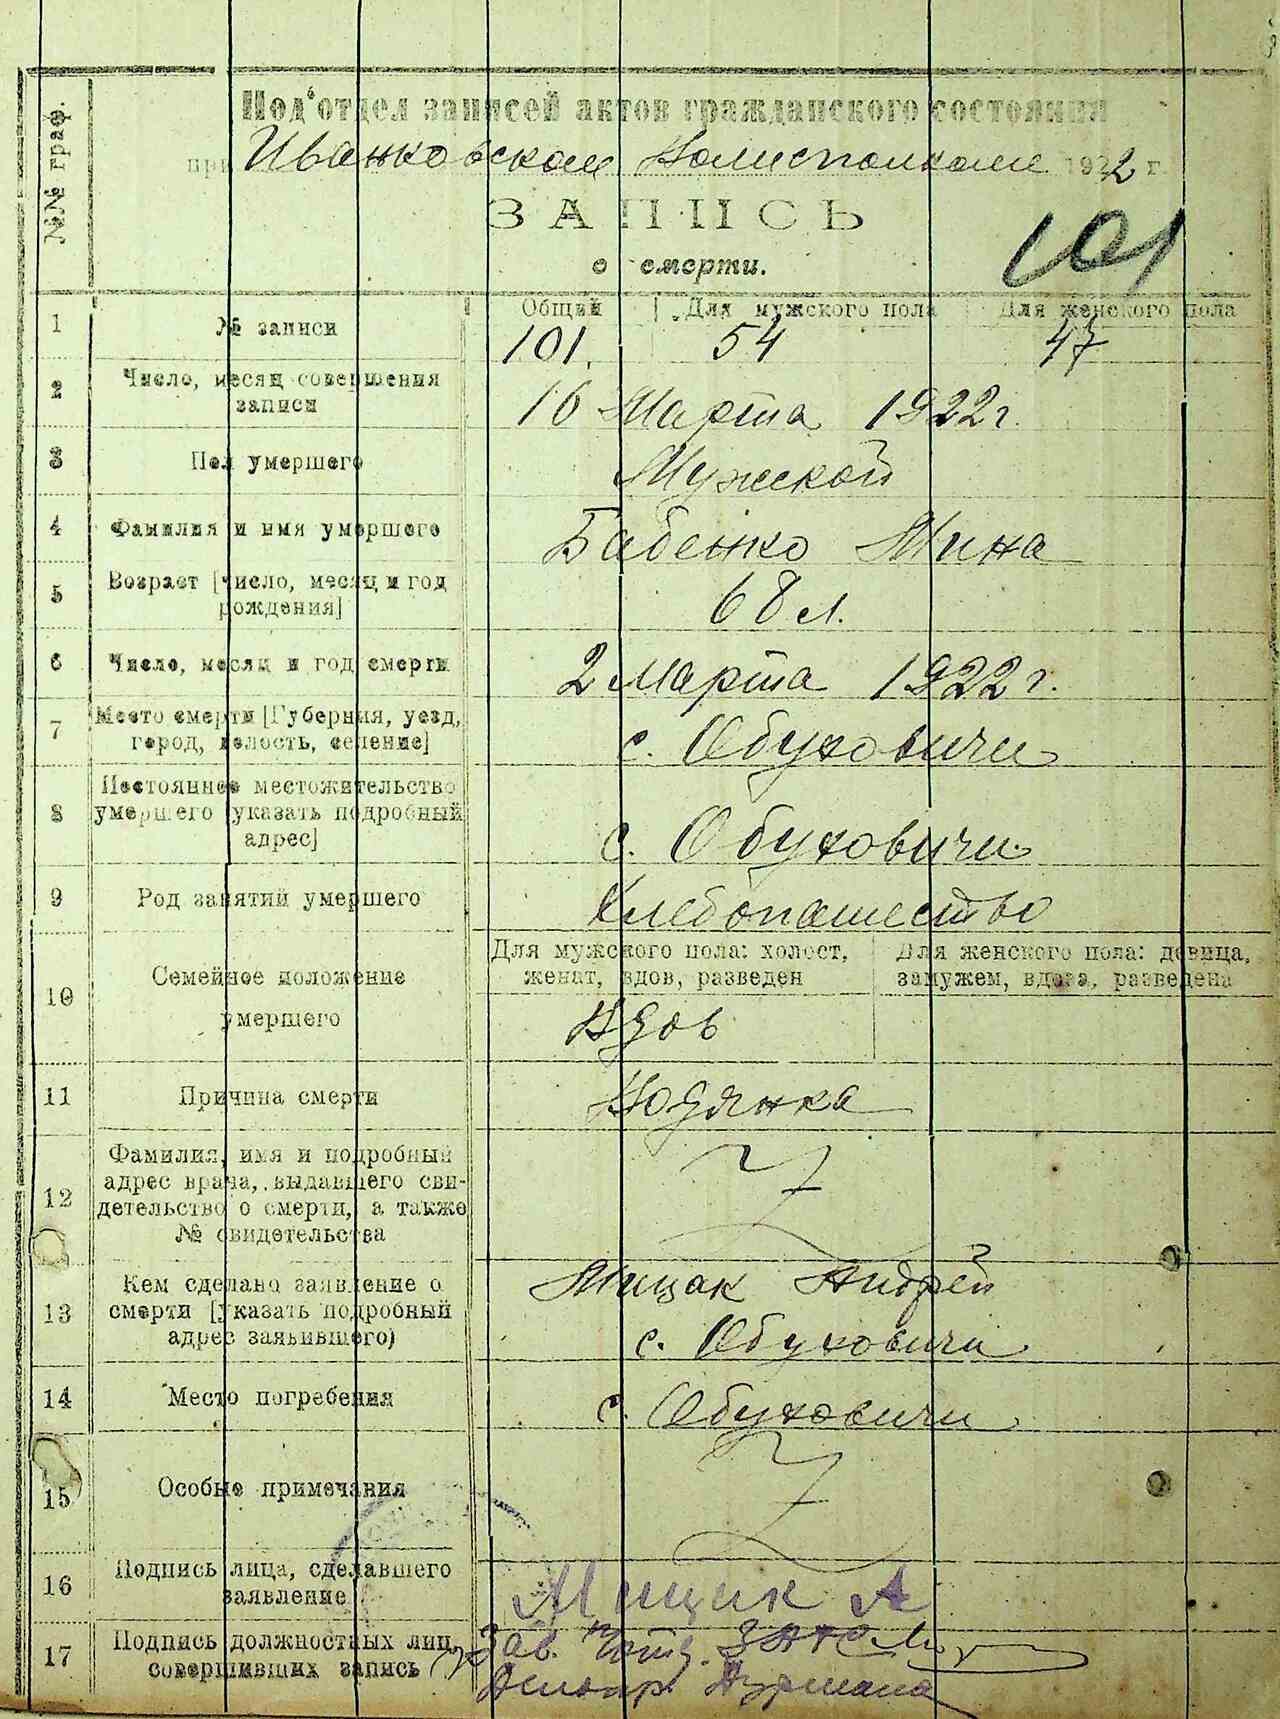 №№ граф.
Под'отдел записей актов гражданского состояния
при Иванковском Волисполкоме 1922 г.
ЗАПИСЬ
о смерти.
101
1 № записи Общий Для мужского пола Для женского пола
101. 54 47
2 Число, месяц совершения записи
16 Марта 1922 г.
3 Пол умершего
Мужской
4 Фамилия и имя умершего
Бабенко Мина
5 Возраст [число, месяц и год рождения]
68 л.
6 Число, месяц и год смерти
2 Марта 1922 г.
7 Место смерти [Губерния, уезд, город, волость, селение]
с. Обуховичи
8 Постоянное местожительство умершего [указать подробный адрес]
с. Обуховичи
9 Род занятий умершего
Хлебопашество
10 Семейное положение умершего
Для мужского пола: холост, женат, вдов, разведен
Для женского пола: девица, замужем, вдова, разведена
Вдов
11 Причина смерти
Водянка
12 Фамилия, имя и подробный адрес врача, выдавшего свидетельство о смерти, а также № свидетельства
13 Кем сделано заявление о смерти [указать подробный адрес заявившего)
Мицак Андрей
с. Обуховичи
14 Место погребения
с. Обуховичи
15 Особые примечания
16 Подпись лица, сделавшего заявление
А
17 Подпись должностных лиц, совершивших запись
Зав. ЗАГС